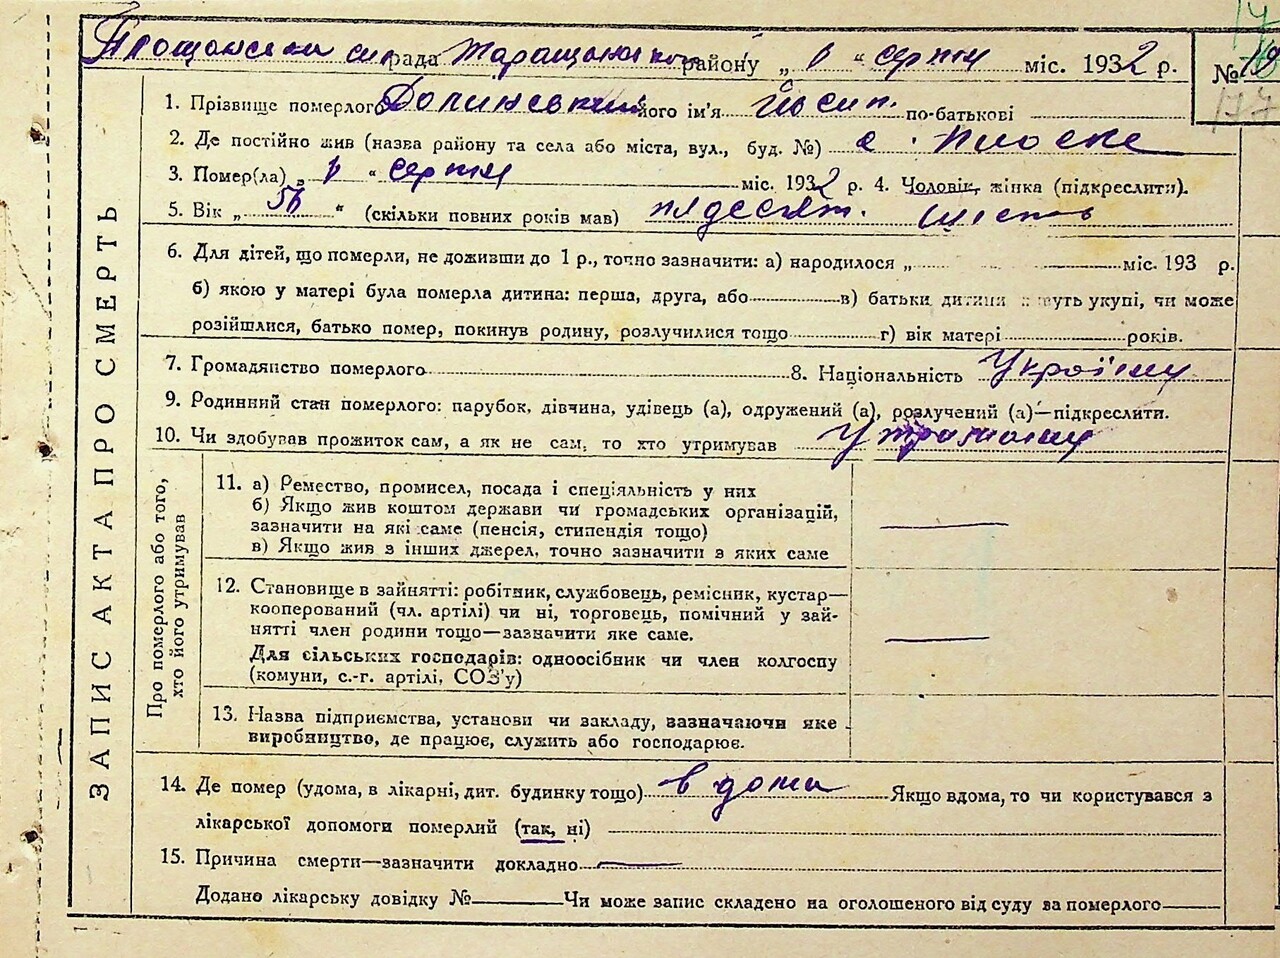 сел рада Таращанського району „ 1 “ серпня міс. 1932 р.
№
177
ЗАПИС АКТА ПРО СМЕРТЬ
1. Прізвище померлого Долинський його ім'я Йосип. по-батькові
2. Де постійно жив (назва району та села або міста, вул., буд. №) с. Плоске
3. Помер(ла) „ 1 “ серпня міс. 1932 р. 4. Чоловік, жінка (підкреслити).
5. Вік „ 56 “ (скільки повних років мав) пядесят. шість
6. Для дітей, що померли, не доживши до 1 р., точно зазначити: а) народилося „ міс. 193 р.
б) якою у матері була померла дитина: перша, друга, або в) батьки дитини живуть укупі, чи може
розійшлися, батько помер, покинув родину, розлучилися тощо г) вік матері років.
7. Громадянство померлого 8. Національність Україну
9. Родинний стан померлого: парубок, дівчина, удівець (а), одружений (а), розлучений (а)—підкреслити.
10. Чи здобував прожиток сам, а як не сам, то хто утримував
Про померлого або того,
хто його утримував
11. а) Ремество, промисел, посада і спеціяльність у них
б) Якщо жив коштом держави чи громадських організацій,
зазначити на які саме (пенсія, стипендія тощо)
в) Якщо жив з інших джерел, точно зазначити з яких саме
12. Становище в зайнятті: робітник, службовець, ремісник, кустар—
кооперований (чл. артілі) чи ні, торговець, помічний у зай-
нятті член родини тощо—зазначити яке саме.
Для сільських господарів: одноосібник чи член колгоспу
(комуни, с.-г. артілі, СОЗ'у)
13. Назва підприємства, установи чи закладу, зазначаючи яке
виробництво, де працює, служить або господарює.
14. Де помер (удома, в лікарні, дит. будинку тощо) в дома Якщо вдома, то чи користувався з
лікарської допомоги померлий (так, ні)
15. Причина смерти—зазначити докладно
Додано лікарську довідку № Чи може запис складено на оголошеного від суду за померлого